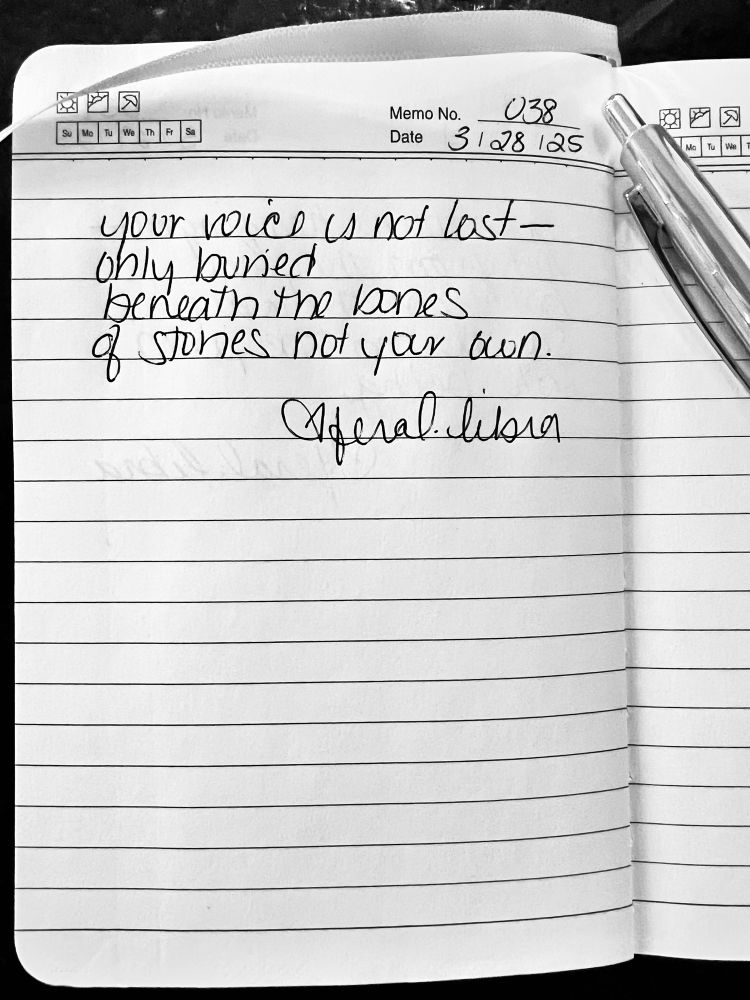 Memo No. 038
Date 3/28/25
Su Mo Tu We Th Fr Sa
Mo Tu We T
your voice is not lost—
only buried
beneath the bones
of stories not your own.
@feral.libra